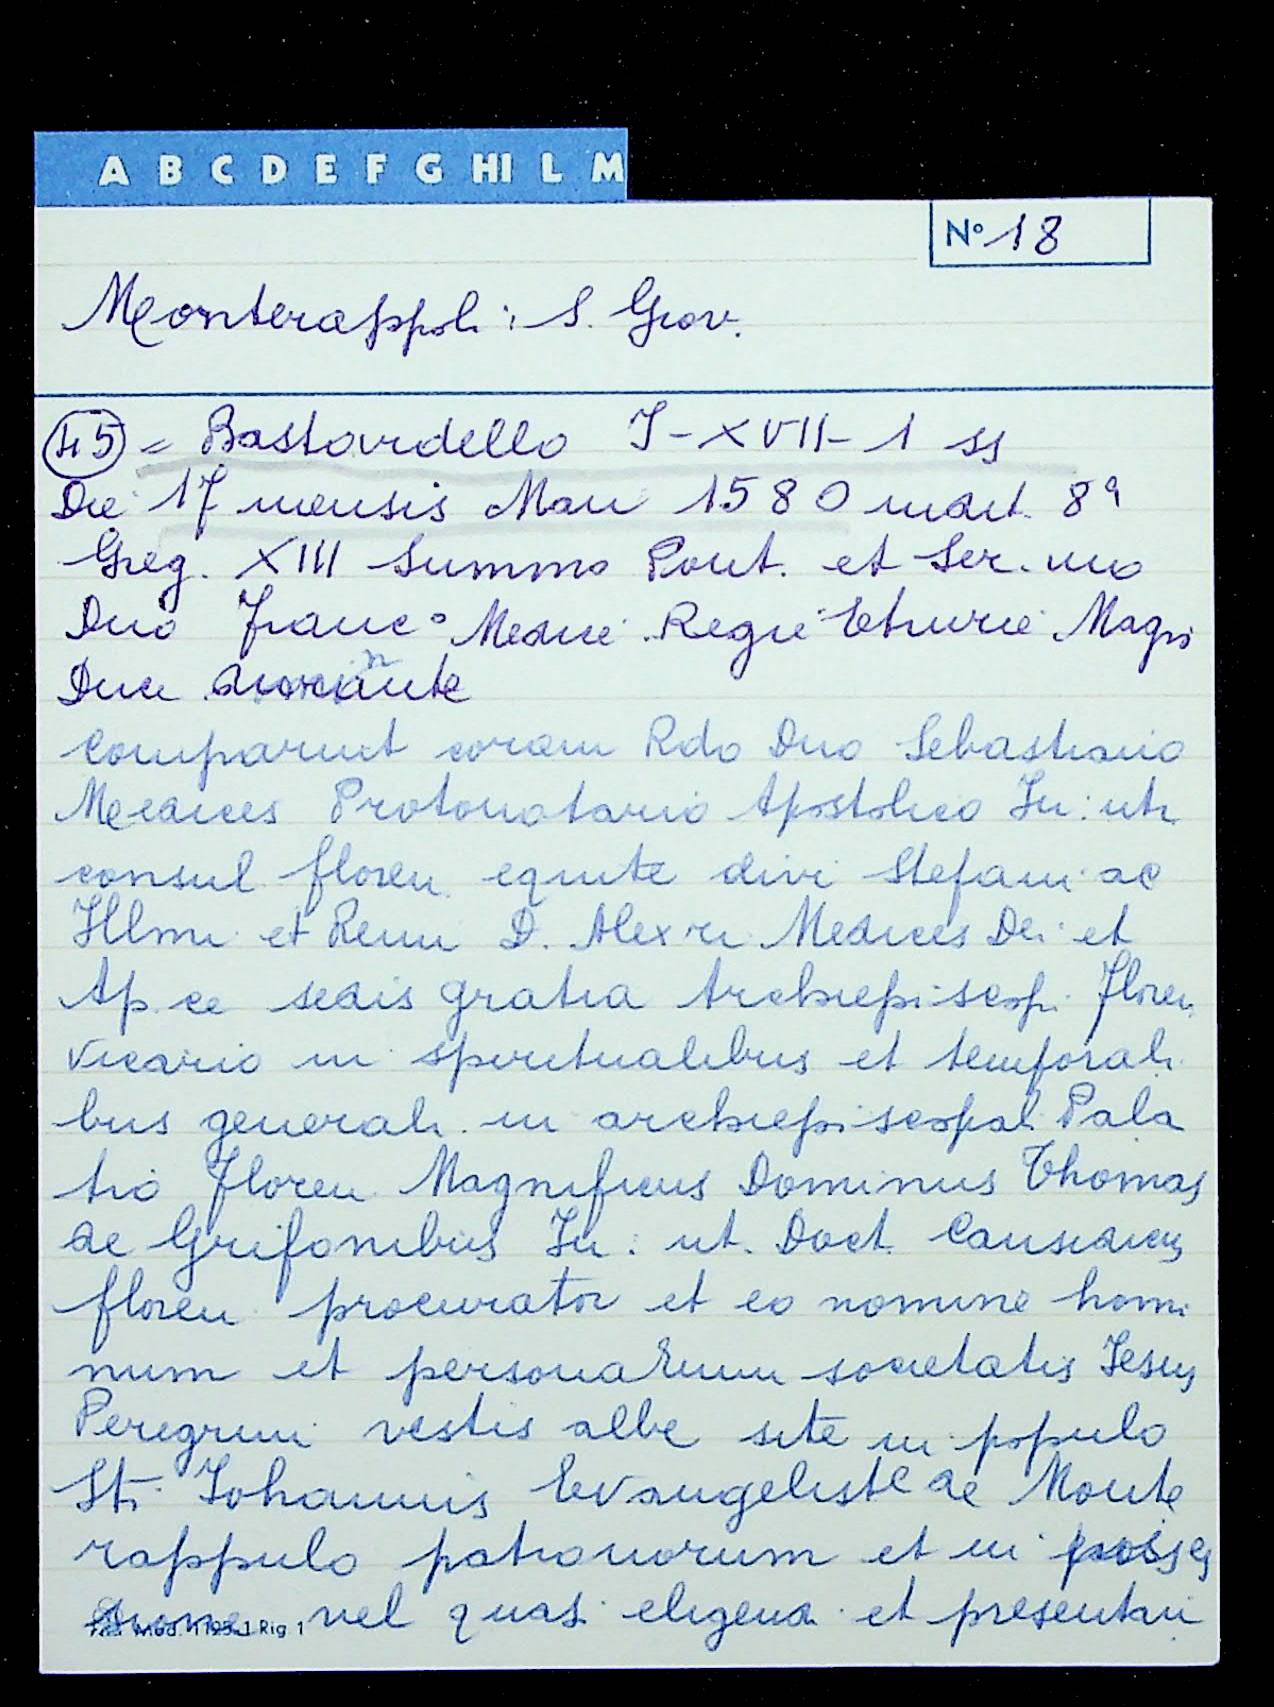 A B C D E F G HI L M
N° 18
Monterappoli: S. Giov.
45 = Bastardello I-XVII-1 ss
Die 17 mensis Maii 1580 indict. 8ª
Greg. XIII Summo Pont. et Ser.mo
Dno Franc° Medici Regie Etrurie Magn
Duce
comparuit coram Rdo Dno Sebastiano
Medices Protonotario Apostolico Iu: utr
consul floren equite divi Stefani ac
Illmi et Revmi D. Alexri Medices Dei et
Ap.ce sedis gratia Archiepiscopi Floren
vicario in spiritualibus et temporali
bus generali in archiepiscopali Pala
tio Floren Magnificus Dominus Thomas
de Grifonibus Iu: ut. Doct. Causidicus
floren procurator et eo nomine homi
num et personarum societatis Iesus
Peregrini vestis albe site in populo
Sti Iohannis Evangeliste de Monte
rappulo patronorum et in posses
sione vel quasi eligendi et presentandi
Mod. Rig. 1